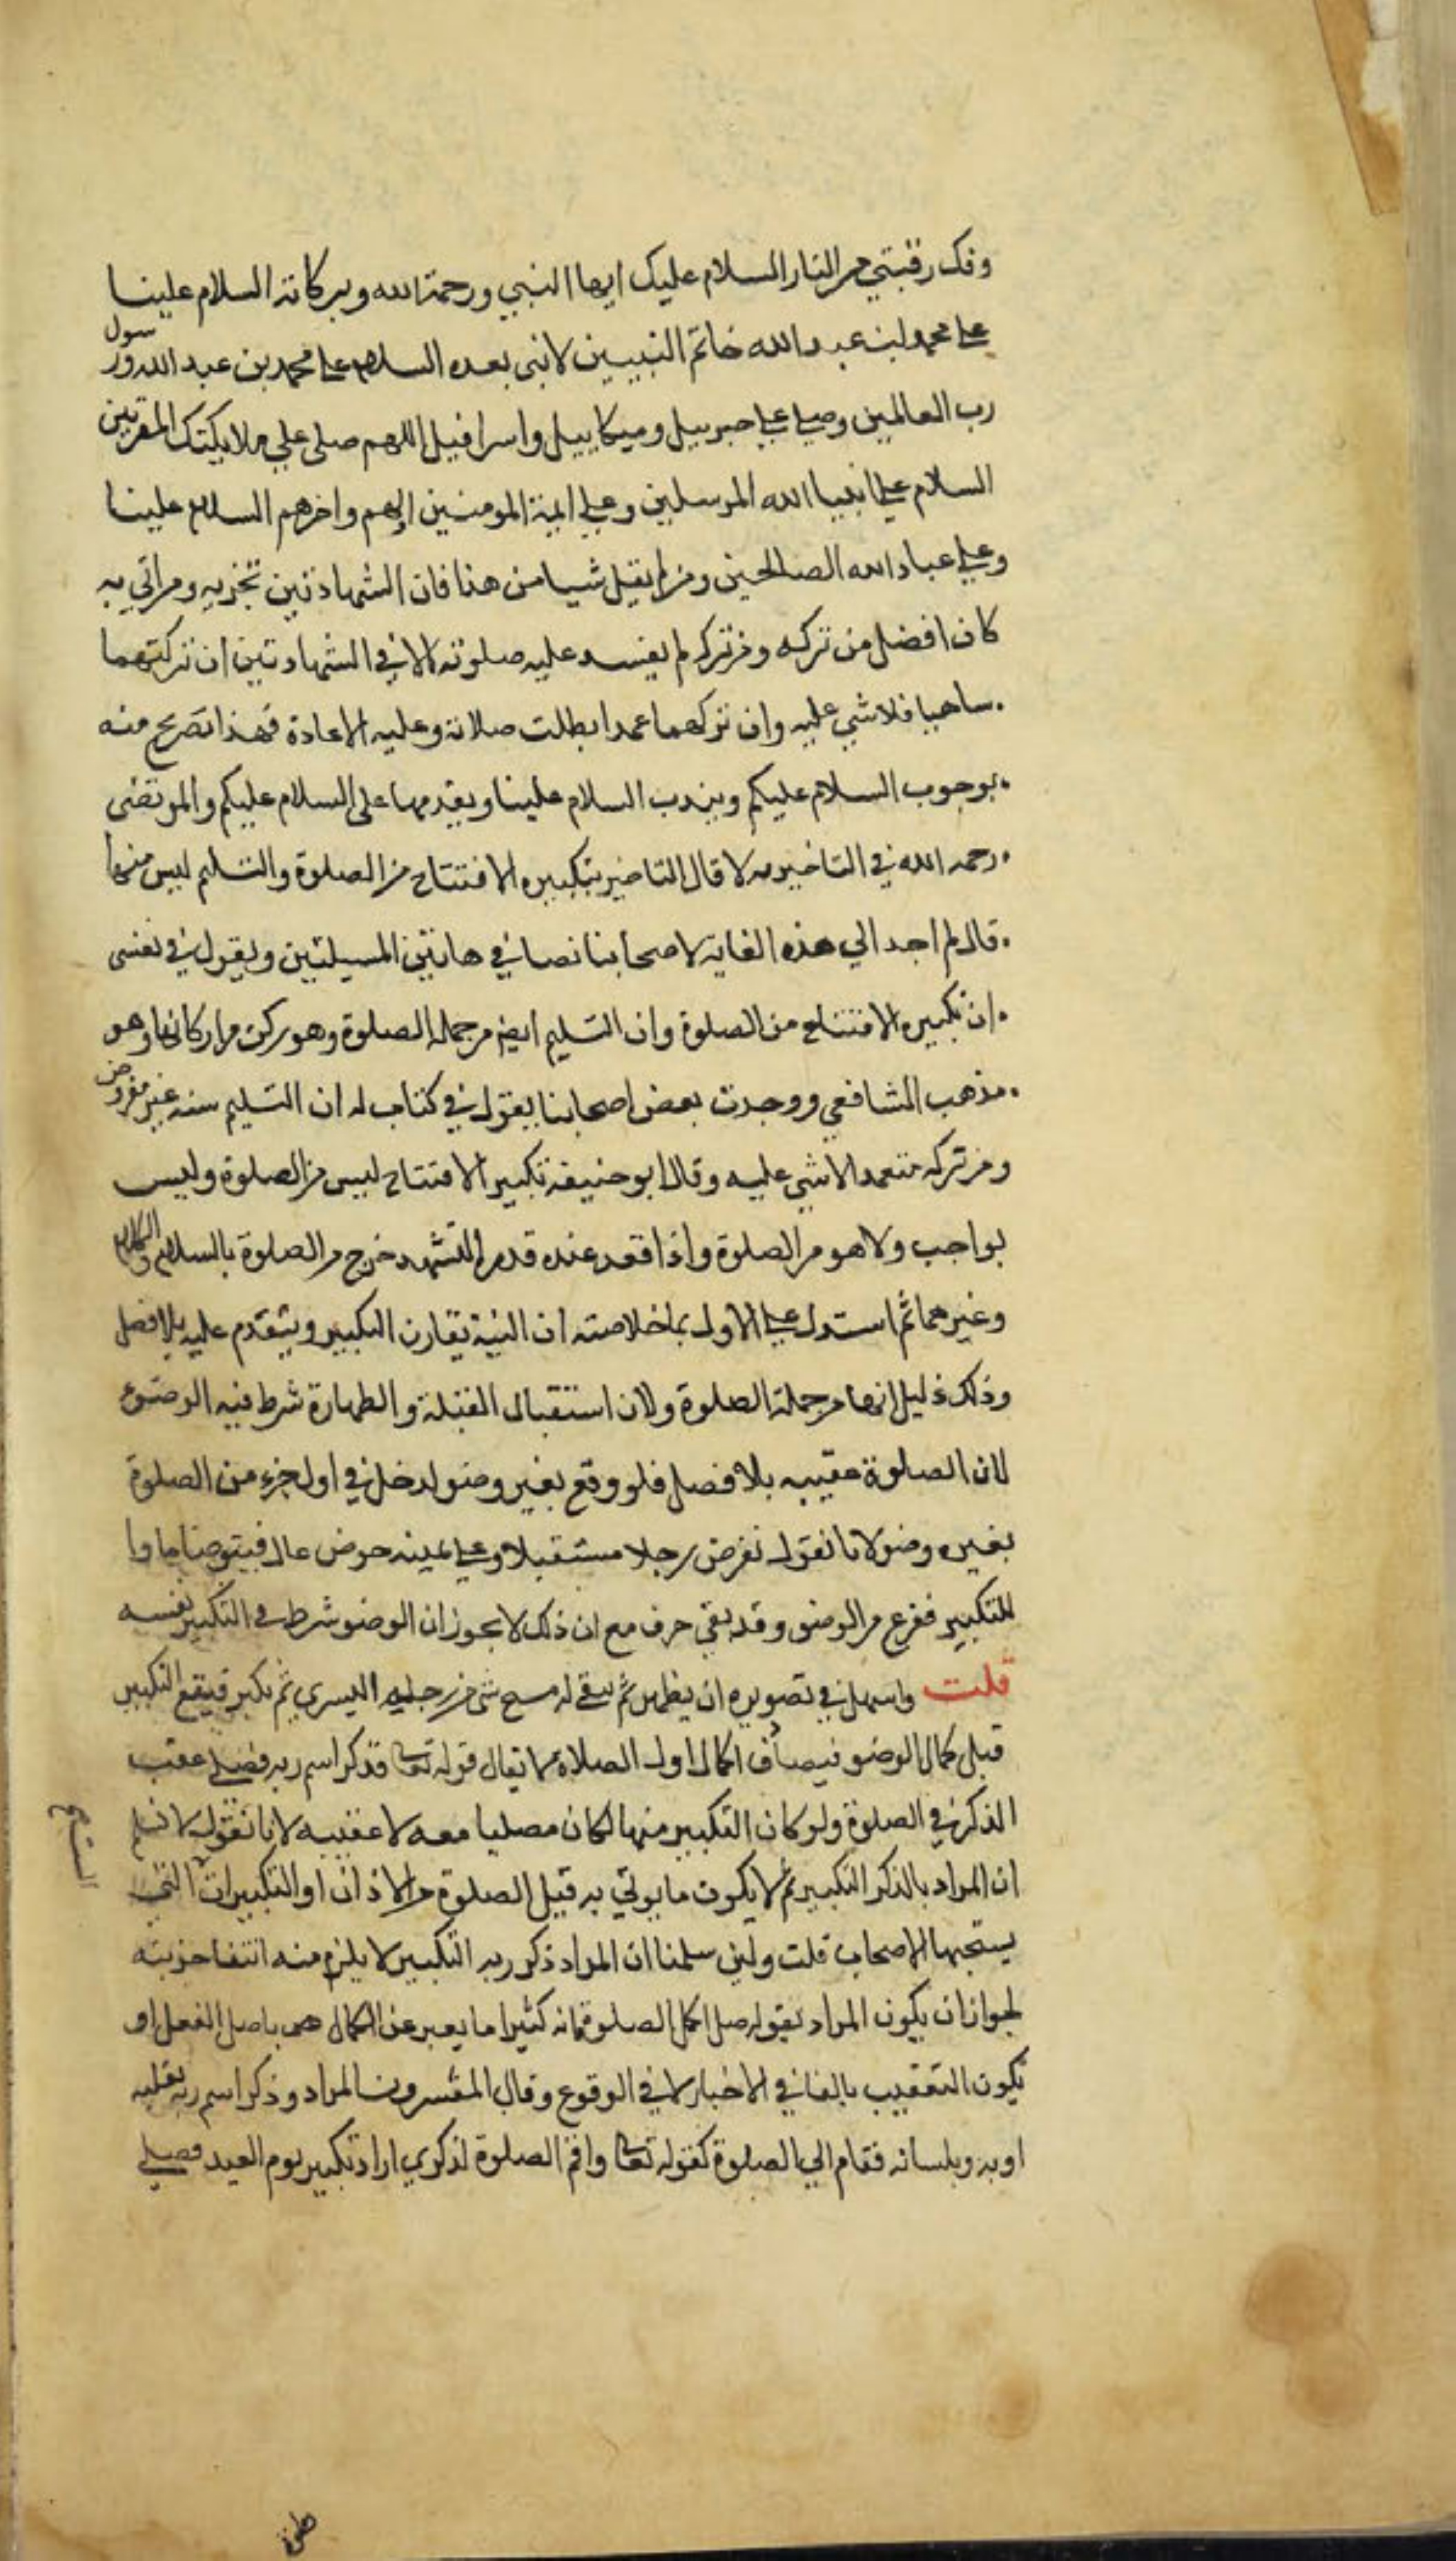 وفك رقبتي من النار السلام عليك ايها النبي ورحمة الله وبركاته السلام علينا
على محمد بن عبد الله خاتم النبيين لا نبي بعده السلام على محمد بن عبد الله ورسول
رب العالمين وصلى على جبرييل وميكاييل واسرافيل اللهم صلى على ملايكتك المقربين
السلام على انبيا الله المرسلين وعلى ايمة المومنين اولهم واخرهم السلام علينا
وعلى عباد الله الصالحين ومن لم يقل شيا من هذا فان الشهادتين تجزيه ومن اتي به
كان افضل من تركه ومن تركه لم يفسد عليه صلوته الا في الشهادتين ان تركتهما
ساهيا فلا شي عليه وان تركهما عمدا بطلت صلاته وعليه الاعادة فهذا تصريح منه
بوجوب السلام عليكم ويندب السلام علينا ويقدمها على السلام عليكم والمرتضى
رحمه الله في قال التا تكبيره الافتتاح من الصلوة والتسليم ليس منها
قال لم اجد الي هذه الغاية لاصحابنا نصا في هاتين المسيلتين ويقول في نفسى
ان تكبيره الافتتاح من الصلوة وان التسليم ايضا من جملة الصلوة وهو ركن من اركانها وهو
مذهب الشافعي ووجدت بعض اصحابنا يقول في كتاب له ان التسليم سنه غير مفروض
ومن تركه متعمدا لا شي عليه وقال ابو حنيفة تكبير الافتتاح ليس من الصلوة وليس
بواجب ولا هو من الصلوة واذا قعد عنده قدر التشهد خرج من الصلوة بالسلام والكلام
وغيرهما ثم استدل على الاول بما خلاصته ان النية تقارن التكبير ويتقدم عليه بلا فصل
وذلك دليل انها من جملة الصلوة ولان استقبال القبلة والطهارة شرط فيه الوضوء
لان الصلوة عقيبه بلا فصل فلو وقع بغير وضو لدخل في اول جزء من الصلوة
بغيره وضو لانا نقول نفرض رجلا مستقبلا وعلى يمينه حوض عال فيتوضا
للتكبير ففرغ من الوضو وقد بقي حرف مع ان ذلك لا يجوز ان الوضو شرط في التكبير نفسه
قلت واسهل في تصويره ان يتطهر ثم يبقى له مسح شي من رجليه اليسري ثم يكبر فيقع التكبير
قبل كمال الوضو فيصادف اكمال اول الصلاة لا يقال قوله تعالى وذكر اسم ربه فصلى عقب
الذكر في الصلوة ولو كان التكبير منها لكان مصليا معه لا عقيبه لانا نقول لا نسلم
ان المراد بالذكر التكبير لم لا يكون ما يوتي به قبل الصلوة من الاذان او التكبيرات التي
يستحبها الاصحاب قلت ولين سلمنا ان المراد ذكر ربه التكبير لا يلزم منه انتفا جزيته
لجواز ان يكون المراد بقوله صلى اكمل الصلوة فانه كثيرا ما يعبر عن الكمال باصل الفعل او
يكون التعقيب بالفا في الاخبار لا في الوقوع وقال المفسرون المراد وذكر اسم ربه بقلبه
او به وبلسانه فقام الي الصلوة كقوله تعالى واقم الصلوة لذكري اراد تكبير يوم العيد فصلى